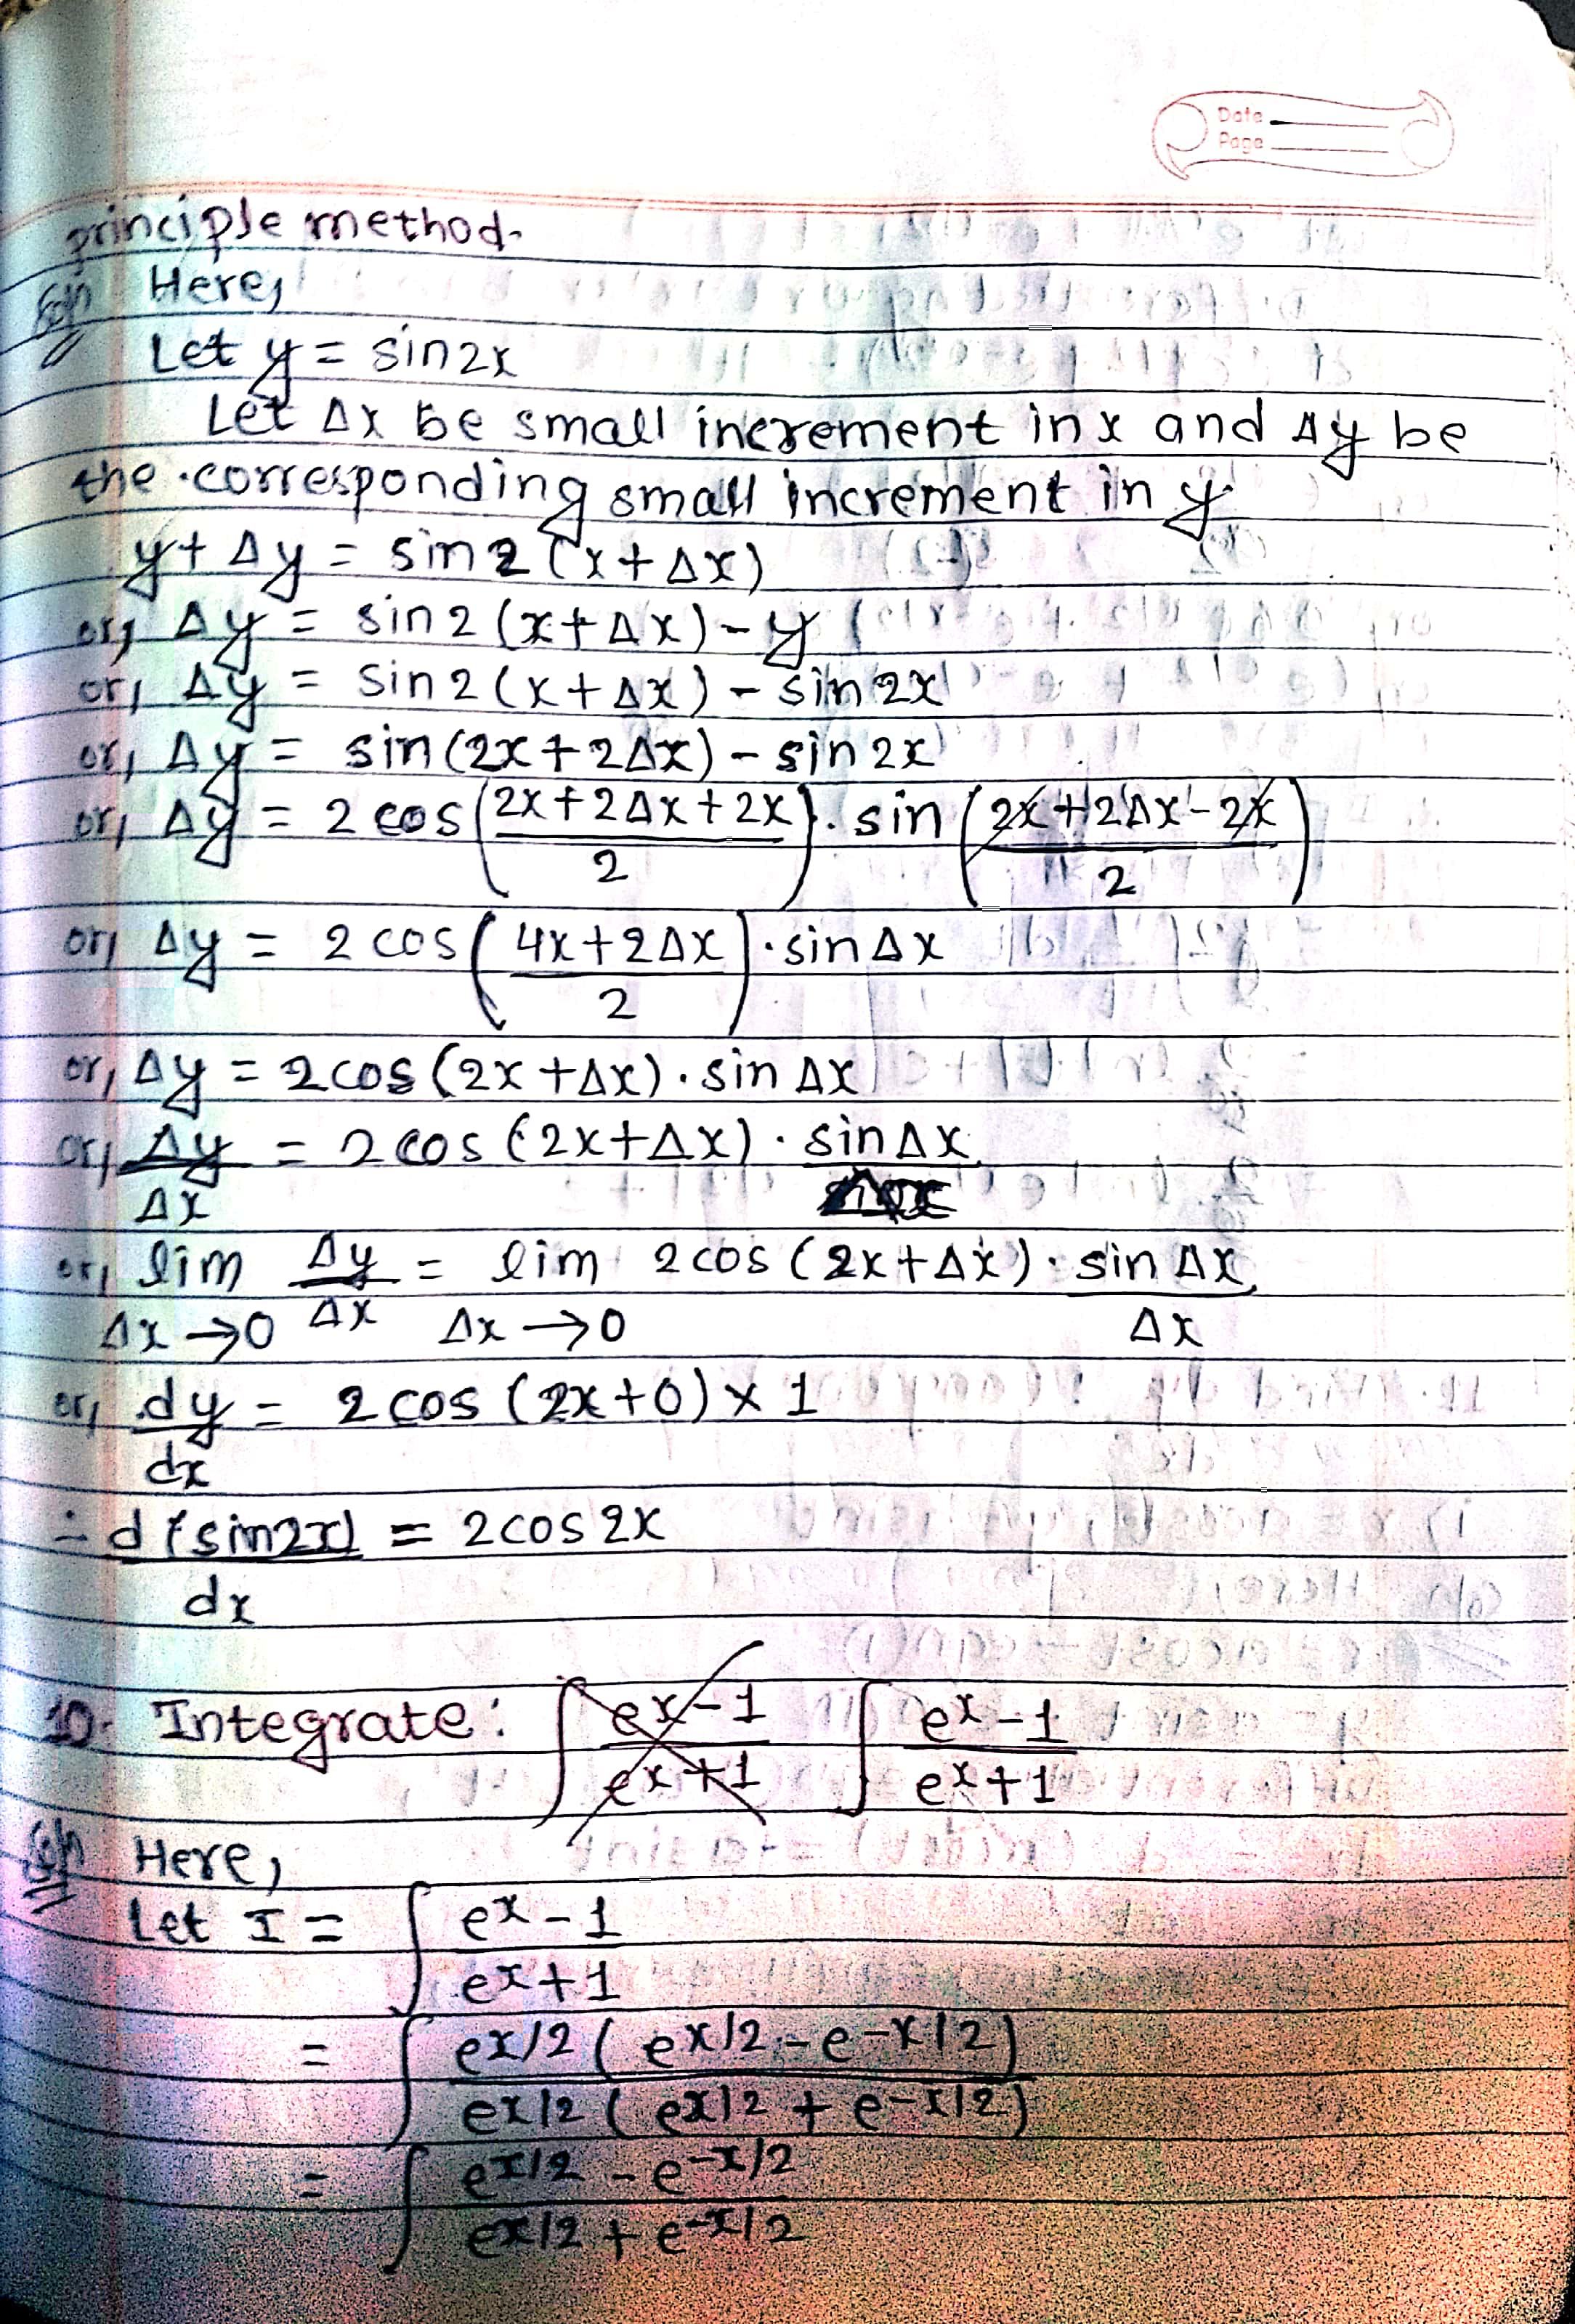 Date
Page
principle method.
Soln Here,
Let y = sin2x
Let Δx be small increment in x and Δy be
the corresponding small increment in y.
y + Δy = sin2(x+Δx)
or, Δy = sin2(x+Δx) - y
or, Δy = sin2(x+Δx) - sin2x
or, Δy = sin(2x+2Δx) - sin2x
or, Δy = 2cos((2x+2Δx+2x)/2) . sin((2x+2Δx-2x)/2)
or, Δy = 2cos((4x+2Δx)/2) . sinΔx
or, Δy = 2cos(2x+Δx) . sinΔx
or, Δy/Δx = 2cos(2x+Δx) . sinΔx/Δx
or, lim Δx→0 Δy/Δx = lim Δx→0 2cos(2x+Δx) . sinΔx/Δx
or, dy/dx = 2cos(2x+0) × 1
∴ d(sin2x)/dx = 2cos2x
10. Integrate: ∫ (e^x - 1)/(e^x + 1) ∫ (e^x - 1)/(e^x + 1)
Soln Here,
Let I = ∫ (e^x - 1)/(e^x + 1)
= ∫ e^x/2 (e^x/2 - e^-x/2)/e^x/2 (e^x/2 + e^-x/2)
= ∫ (e^x/2 - e^-x/2)/(e^x/2 + e^-x/2)